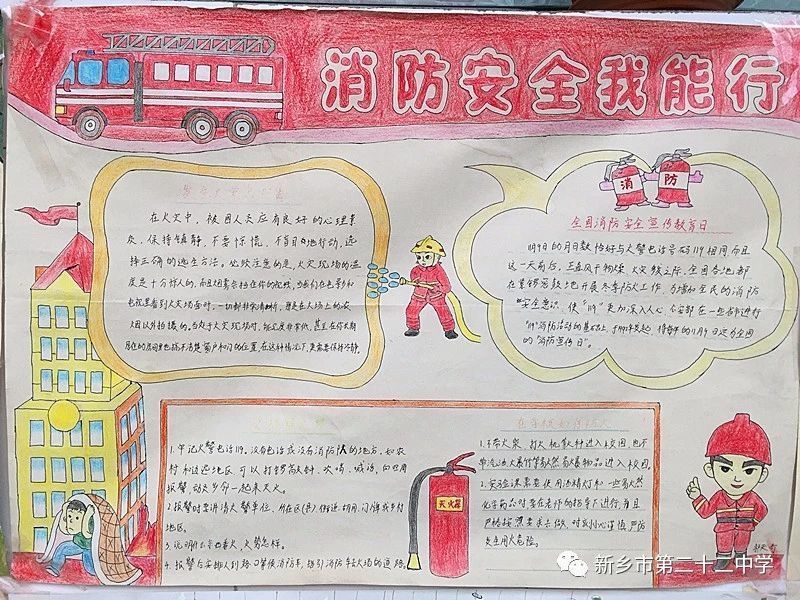 消防安全我能行
在火灾中，被困人员应有良好的心理素
质，保持镇静，不要惊慌，不盲目地行动，选
择正确的逃生方法。必须注意的是，火灾现场的温
度是十分惊人的，而且烟雾会挡住你的视线，
电视里看到火灾场面时，一切都非常清晰，那是在火场上的浓
烟以外拍摄的。当处于火灾现场时，能见度非常低，甚至在你长期
居住的房间里也搞不清楚窗户和门的位置，在这种情况下，更需要保持冷静。
消 防
全国消防安全宣传教育日
11月9日的月日数恰好与火警电话号码119相同，而且
这一天前后，正值风干物燥、火灾频发之际，全国各地都
在紧锣密鼓地开展冬季防火工作。为增加全民的消防
安全意识，使"119"更加深入人心，公安部在一些省市进行
"119"消防活动的基础上，于1992年发起，将每年的11月9日定为全国
的"消防宣传日"。
1. 牢记火警电话119。没有电话或没有消防队的地方，如农
村和边远地区，可以打锣敲钟、吹哨、喊话，向四周
报警，动员乡邻一起来灭火。
2. 报警时要讲清火警单位、所在区(县)、街道、胡同、门牌或乡村
地区。
3. 说明什么东西着火，火势怎样。
4. 报警后安排人到路口等候消防车，指引消防车去火场的道路。
灭火器
1. 不带火柴、打火机等火种进入校园，也不
带汽油、爆竹等易燃易爆物品进入校园。
2. 实验课需要使用酒精灯和一些易燃
化学药品时，要在老师的指导下进行，并且
严格按照要求去做，时刻小心谨慎，严防
发生用火危险。
新乡市第二十二中学